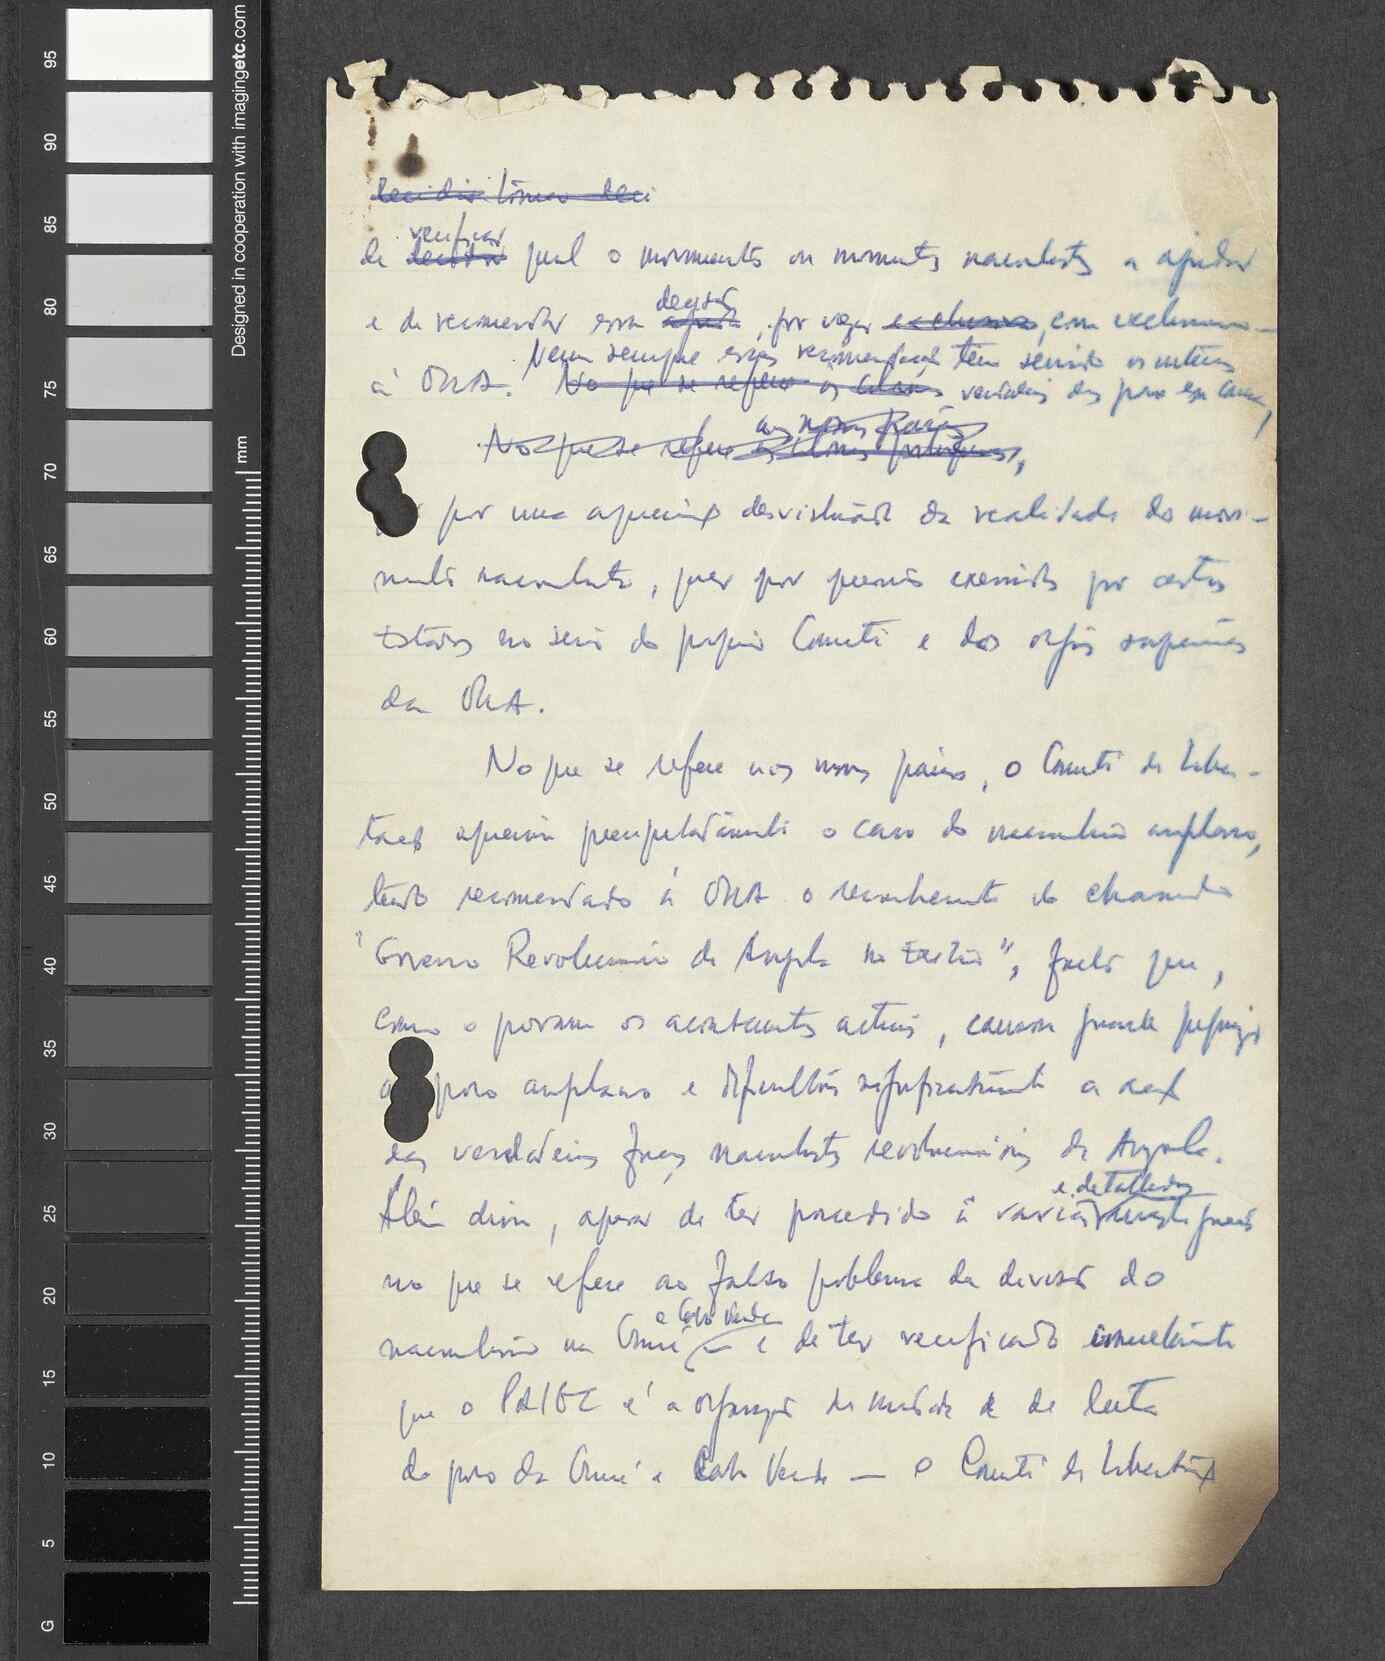 Designed in cooperation with imagingetc.com
mm
95
90
85
80
75
70
65
60
55
50
45
40
35
30
25
20
15
10
5
G
decidir tomar deci
verificar
de decidir qual o movimento ou movimentos nacionalistas a ajudar
decisão
e de recomendar essa ajuda, por vezes exclusiva, com exclusivi-
Nem sempre essas recomendações têm servido os interesses
à OUA. No que se refere às colónias verdadeiros dos povos em causa,
aos nossos Países
No que se refere às colónias portuguesas,
por uma apreciação desvirtuada da realidade do movi-
mento nacionalista, quer por pressões exercidas por certos
Estados no seio do próprio Comité e dos orgãos superiores
da OUA.
No que se refere aos nossos países, o Comité de Liber-
tação apreciou precipitadamente o caso do nacionalismo angolano,
tendo recomendado à OUA o reconhecimento do chamado
"Governo Revolucionário de Angola no Exílio", facto que,
como o provam os acontecimentos actuais, causou grande prejuízo
ao povo angolano e dificultou significativamente a acção
das verdadeiras forças nacionalistas revolucionárias de Angola.
e detalhados
Além disso, apesar de ter procedido a vários
no que se refere ao falso problema da divisão do
e Cabo Verde
nacionalismo na Guiné e de ter verificado
que o PAIGC é a organização de unidade e de luta
do povo da Guiné e Cabo Verde — o Comité de Libertação